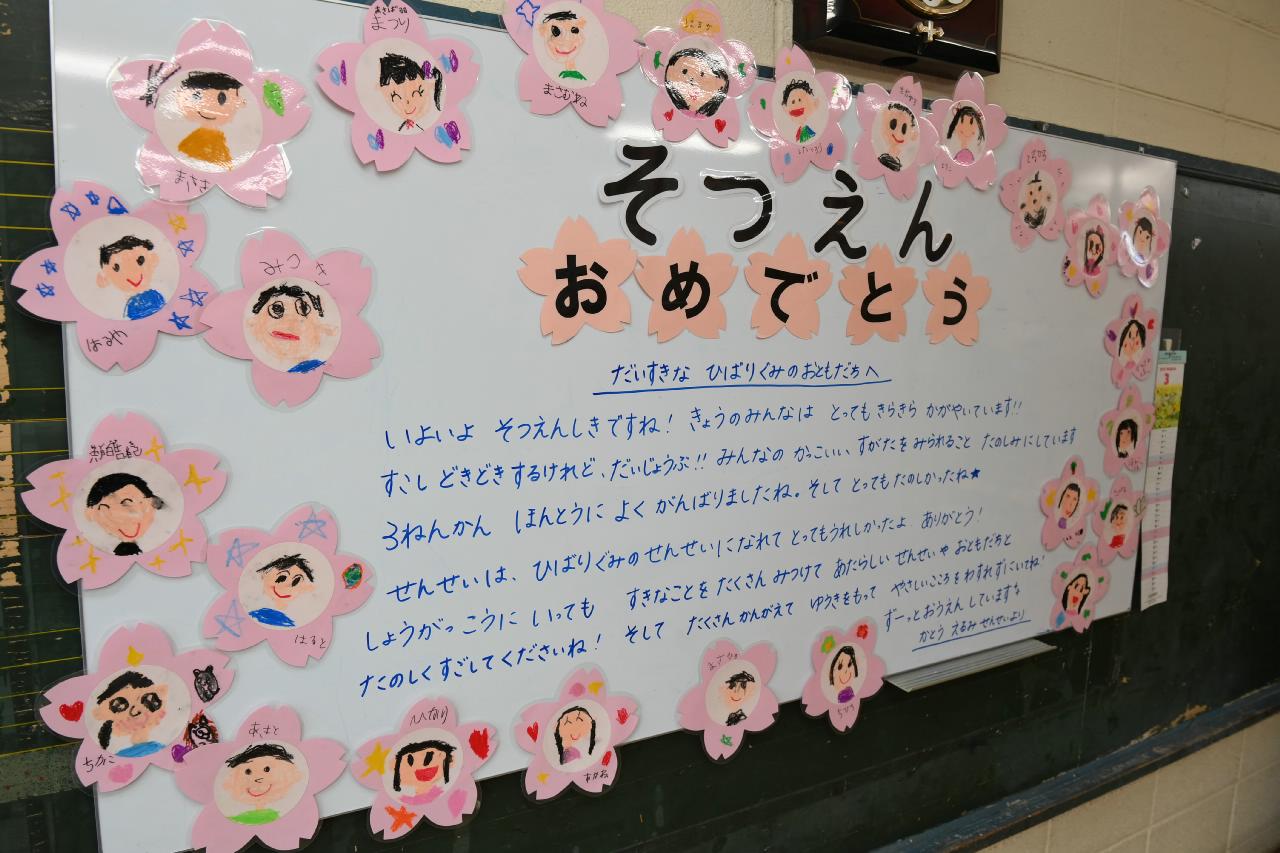 まつり
まさき
まさむね
そつえん
おめでとう
はるや
みつき
だいすきな ひばりぐみのおともだちへ
いよいよ そつえんしきですね! きょうのみんなは とってもきらきら かがやいています!!
すこし どきどきするけれど、だいじょうぶ!! みんなの かっこいい、すがたを みられること たのしみにしています
3ねんかん ほんとうに よく がんばりましたね。そして とってもたのしかったね★
せんせいは、ひばりぐみのせんせいになれて とってもうれしかったよ ありがとう!
しょうがっこうに いっても すきなことを たくさん みつけて あたらしい せんせいや おともだちと
たのしくすごしてくださいね! そして たくさん かんがえて ゆうきをもって やさしいこころを わすれずにいてね!
ずーっとおうえん しています
かとう えるみ せんせいより
はると
ちかこ
あさと
ひなり
3